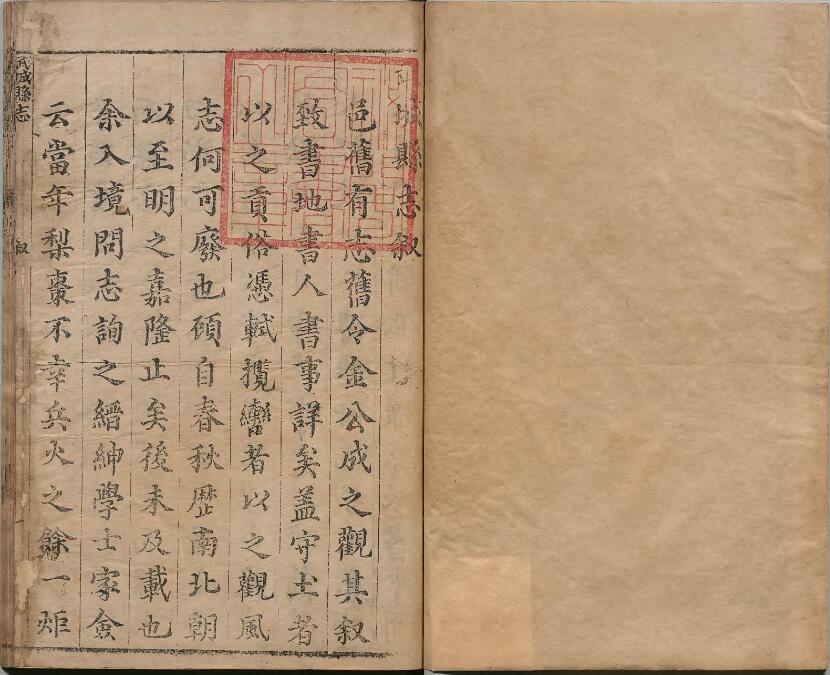 武城縣志叙
邑舊有志舊令金公成之觀其叙
致書地書人書事詳矣盖守土者
以之貢俗憑軾攬轡者以之觀風
志何可廢也頋自春秋歷南北朝
以至明之嘉隆止矣後未及載也
余入境問志詢之縉紳學士家僉
云當年梨棗不幸兵火之餘一炬
武城縣志
叙